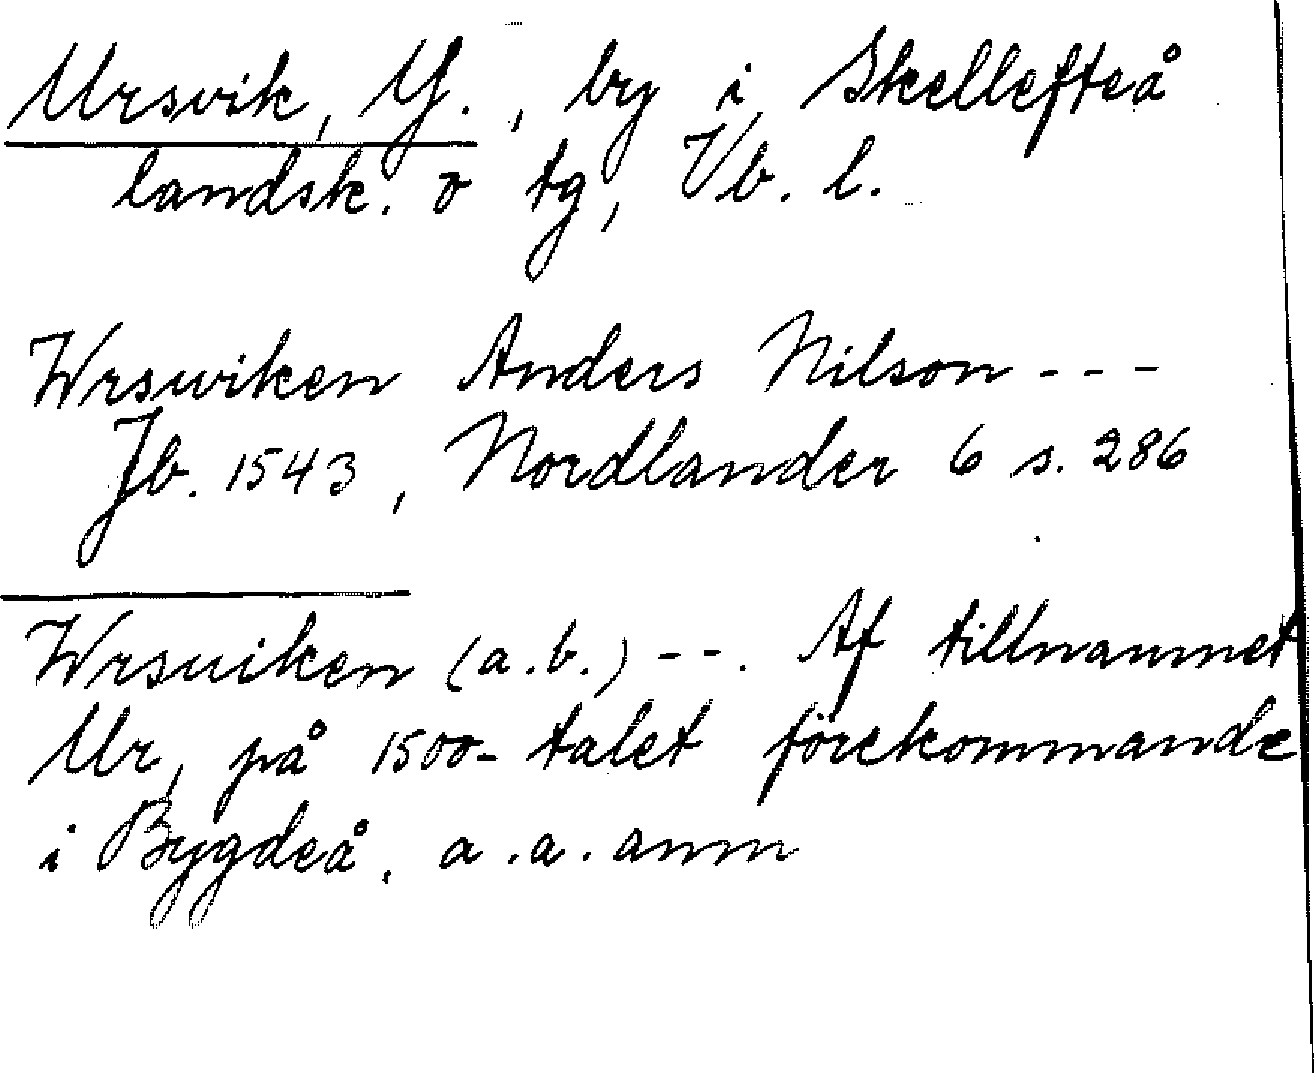 Ursvik, Y., by i Skellefteå
landsk. o tg, Vb. l.
Wrswiken Anders Nilson ---
Jb. 1543, Nordlander 6 s. 286
Wrsuiken (a.b.) --. Af tillnamnet
Ur, på 1500-talet förekommande
i Bygdeå, a.a. anm